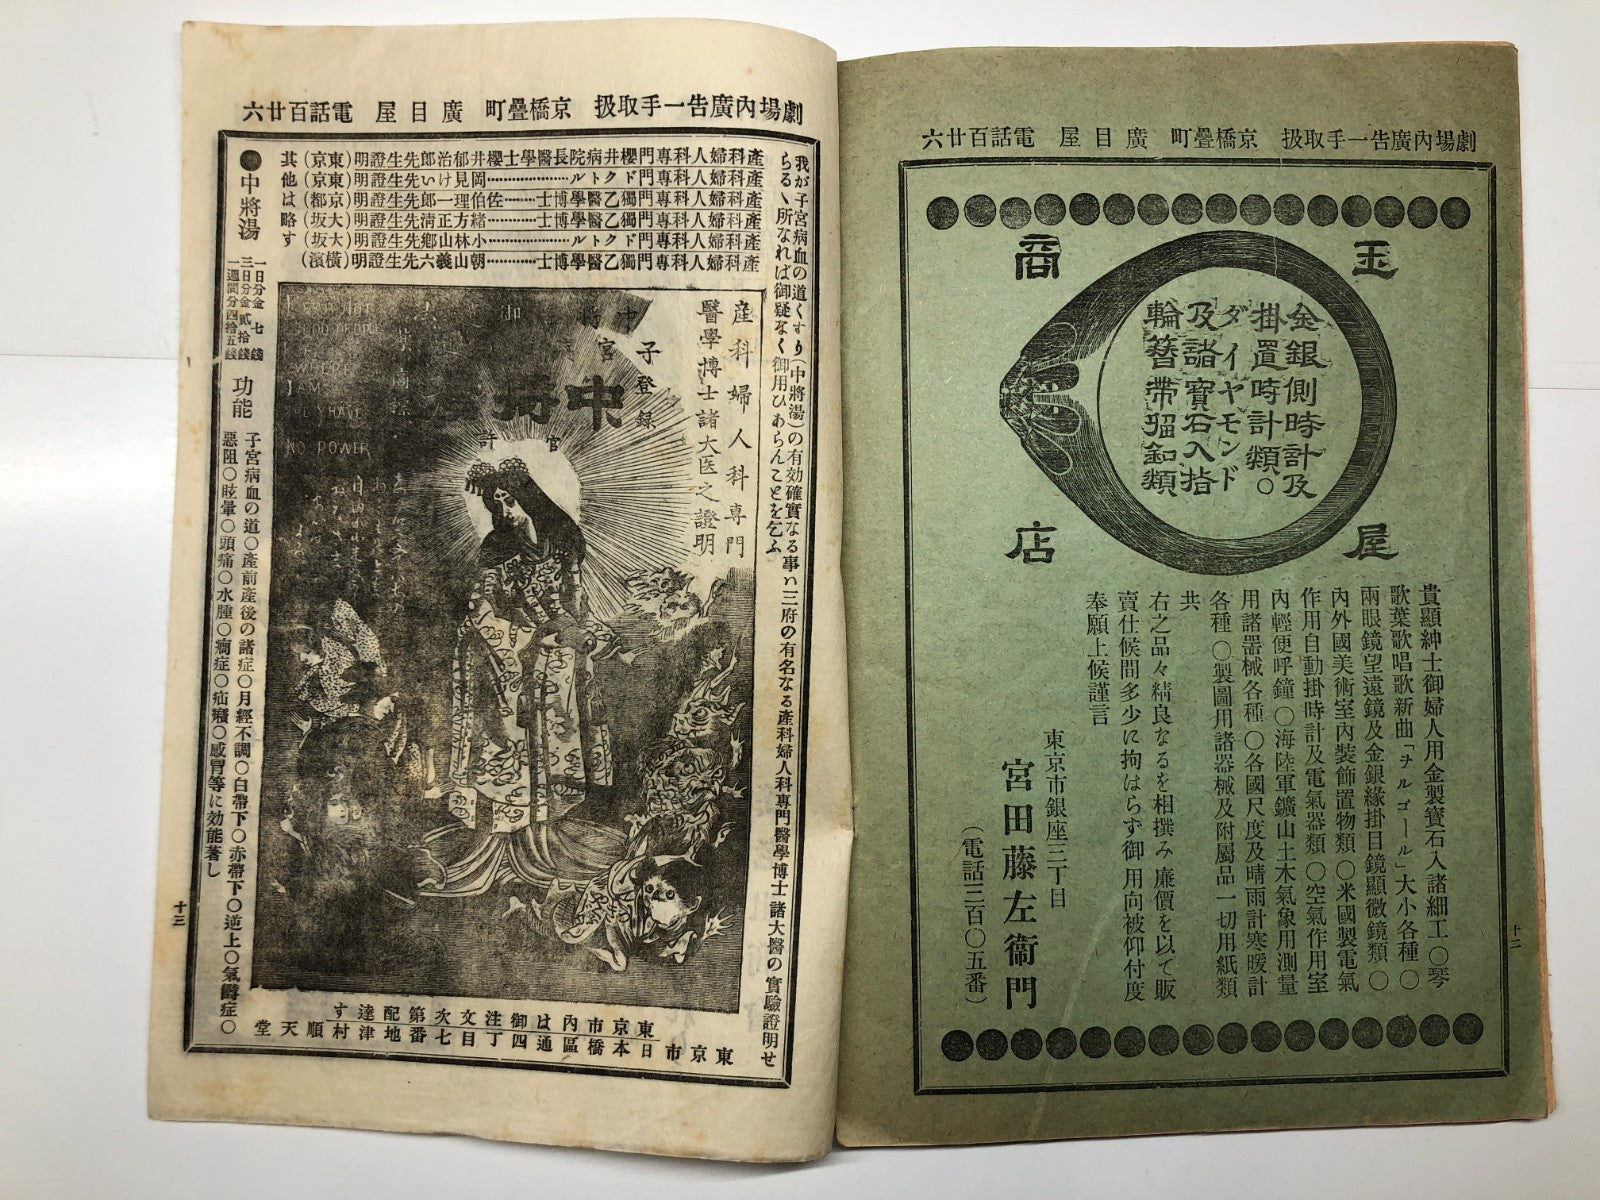 劇場内廣告一手取扱 京橋疊町 廣目屋 電話百廿六
玉屋
商店
金銀側時計及
掛置時計類〇
ダイヤモンド
及諸寳石入指
輪簪帶留釦類
貴顯紳士御婦人用金製寳石入諸細工〇琴
歌葉歌唱歌新曲「オルゴール」大小各種〇
兩眼鏡望遠鏡及金銀緣掛目鏡顯微鏡類〇
内外國美術室内裝飾置物類〇米國製電氣
作用自動掛時計及電氣器類〇空氣作用室
内輕便呼鐘〇海陸軍鑛山土木氣象用測量
用諸器械各種〇各國尺度及晴雨計寒暖計
各種〇製圖用諸器械及附屬品一切用紙類
共
右之品々精良なるを相撰み廉價を以て販
賣仕候間多少に拘はらず御用向被仰付度
奉願上候謹言
東京市銀座三丁目
宮田藤左衞門
(電話三百〇五番)
十二
劇場内廣告一手取扱 京橋疊町 廣目屋 電話百廿六
我が子宮病血の道くすり(中將湯)の有効確實なる事ハ三府の有名なる產科婦人科専門醫學博士諸大醫の實驗證明せ
らるゝ所なれば御疑なく御用ひあらんことを乞ふ
產科婦人科専門櫻井病院長醫學士櫻井郁治郎先生證明(東京)
產科婦人科専門ドクトル………岡見けい先生證明(東京)
產科婦人科専門獨乙醫學博士……佐伯理一郎先生證明(京都)
產科婦人科専門獨乙醫學博士……緒方正清先生證明(大坂)
產科婦人科専門ドクトル………小林山鄕先生證明(大坂)
產科婦人科専門獨乙醫學博士……朝山義六先生證明(橫濱)
其他は略す
産科婦人科専門
醫學博士諸大医之證明
子登録
官許
中將湯
NO POWER
●中將湯
一日分金七錢
三日分金貳拾錢
一週間分四拾五錢
功能
子宮病血の道〇產前產後の諸症〇月經不調〇白帶下〇赤帶下〇逆上〇氣欝症〇
惡阻〇眩暈〇頭痛〇水腫〇癇症〇疝癪〇感冒等に効能著し
東京市内は御注文次第配達す
東京市日本橋區通四丁目七番地津村順天堂
十三